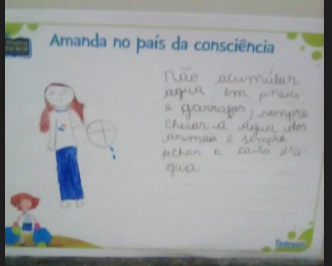 Amanda no país da consciência
não acumular
agua em pneus
e garrafas, sempre
checar a agua dos
animais e sempre
fichar a caixa d'a-
gua